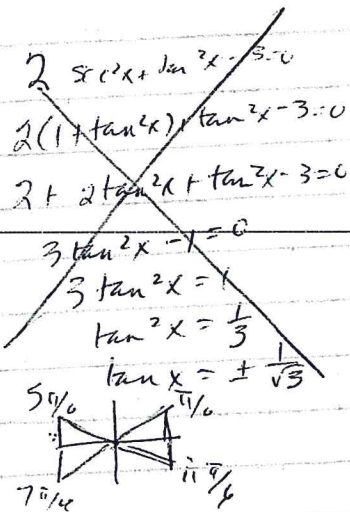 2 sec²x + tan²x - 3 = 0
2(1 + tan²x) + tan²x - 3 = 0
2 + 2tan²x + tan²x - 3 = 0
3 tan²x - 1 = 0
3 tan²x = 1
tan²x = 1/3
tan x = ± 1/√3
5π/6 π/6
7π/6 11π/6